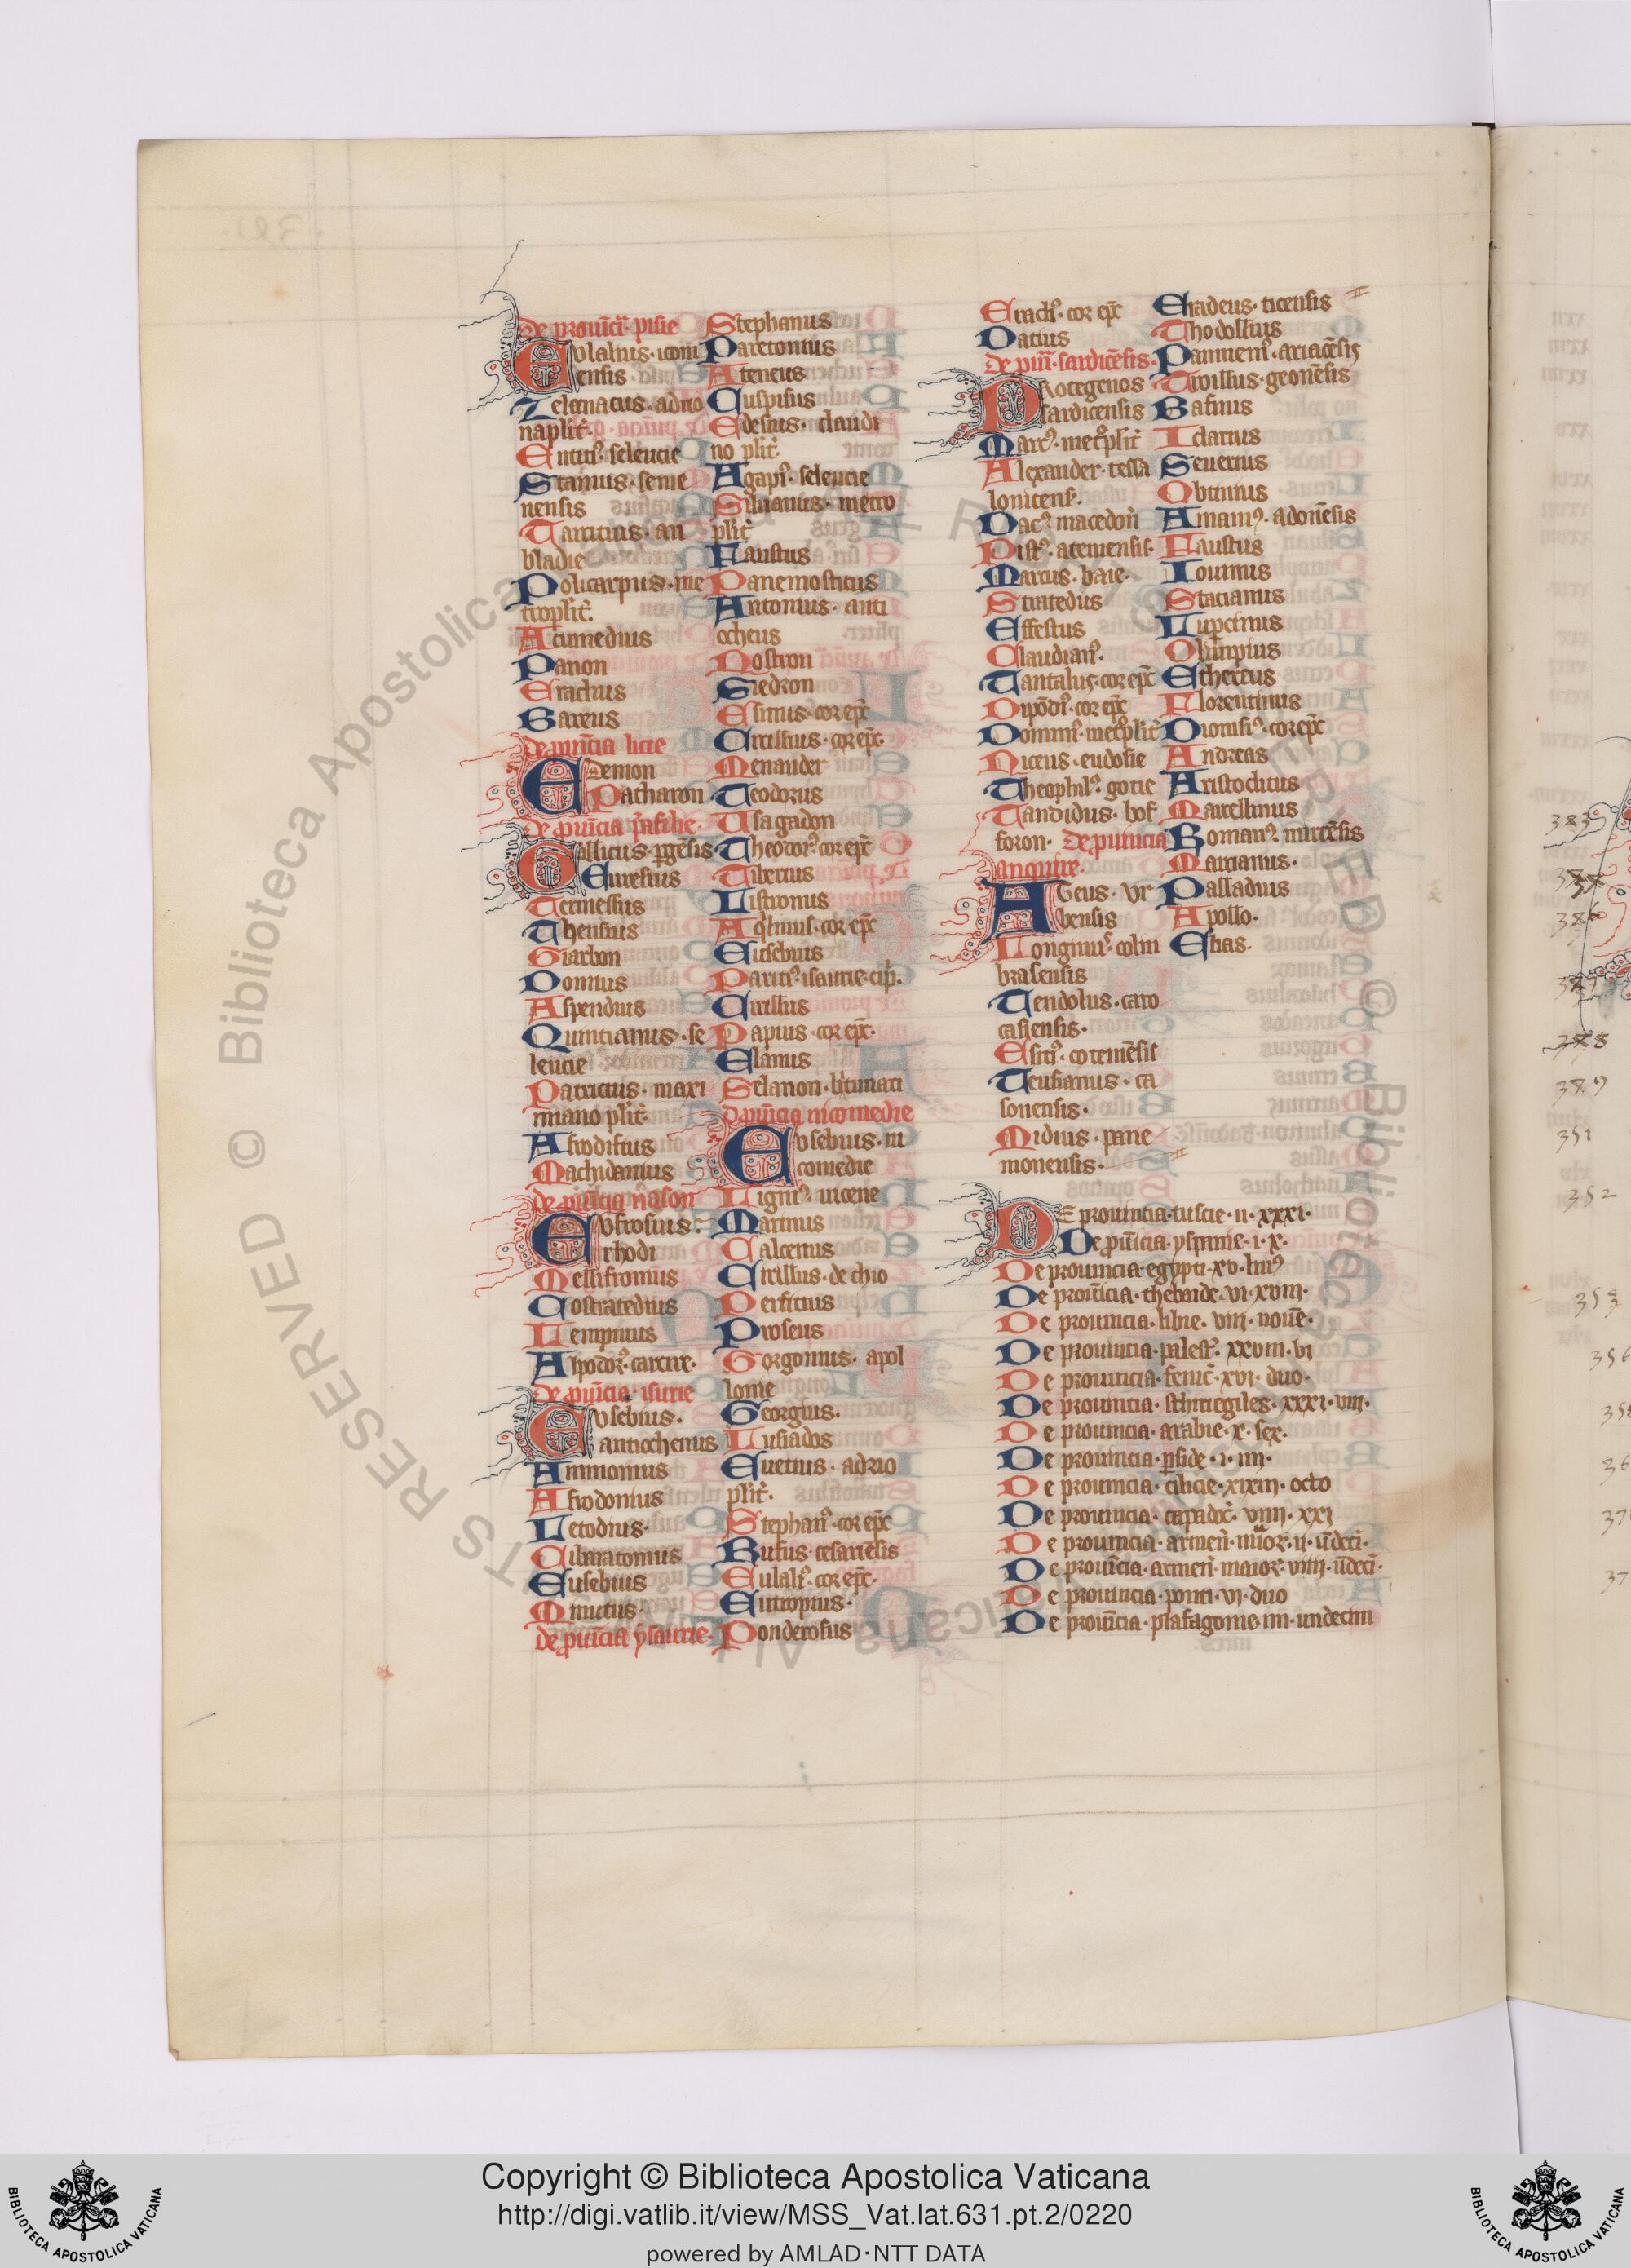 De prouĩcia pisie
Eulalius · iconi
ensis
Zelonacus · adrio
naplit̃.
Entici᷒ · seleucie
Stanius · seme
nensis
Tarcitius · an
bladie
Policarpus · me
troplit̃.
Acumedius
Panon
Erachus
Bareus
de puĩcia licie
Edemon
Patharon
De puĩcia
Callicus · pgẽsis
Euresius
Termessus
Thensius
Giarbon
Domnus
Aspendius
Quintianus · se
leucie
Patricius · maxi
miano plit̃.
Afrodisius
Machidamus
de puĩcia nason
Eufrosius ·
rhodi
Mellifronius
Costratedius
Lempnius
Alpodor᷒ · carcire ·
De puĩcia · isurie
Eusebius ·
antiochenus
Ammonius
Afrodonius
Letodius ·
Cilaratonius
Eusebius
Mnictus ·
de puĩcia ysaurie ·
Stephanus
Paretonius
Ateneus
Cuspisus
Edesius · claudi
no plit̃
Agapi᷒ · seleucie
Siluanus · metro
plit̃
Faustus
Panemosticus
Antonius · anti
ocheus
Nostron
Siedron
Esicius · cor ep̃c
Cirillius · cor ep̃c ·
Menander
Teodorus
Usagadon
Theodor᷒ · cor ep̃c
Tibertus
Listronus
Aqlinus · cor ep̃c
Eusebius
Parici᷒ · isaurie · cip̃.
Cirillius
Papius · cor ep̃c ·
Elanius
Selanon · bitimati
D puĩcia nicomedie
Eusebius · ni
comedie
Ligni᷒ · nicene
Marinus
Calcenus
Cirillus · de chio
Perficius
Proseus
Gorgonius · apol
lonie
Georgius ·
Lusiados
Euetius · adrio
plit̃.
Stephan᷒ · cor ep̃c
Rufus · cesariẽsis
Eulali᷒ · cor ep̃c ·
Eutropius ·
Ponderosus
Eracli᷒ · cor ep̃c
Datius
de puĩ · sardicẽsis ·
Protegenos
sardicensis
Marc᷒ · met᷒plit̃
Alexander · tessa
lonicens̃.
Dac᷒ macedoñ
Pist᷒ · ateniensis ·
Marcus · baie ·
Stratedus
Effestus
Claudian᷒ ·
Tantalus · cor ep̃c
Dipõdi᷒ · cor ep̃c
Domni᷒ · met᷒plit̃
Niceus · eudosie
Theophil᷒ · gotie
Tandidus · bos
foron · De puincia
anquire ·
Ageus · ur
bensis
Longinus · colni
brasensis
Tendolus · caro
casiensis ·
Esiti᷒ · cotemẽsis
Teusianus · ca
sonensis ·
Midius · pane
monensis ·
Eradeus · ticensis
Thodollius
Panniem᷒ · ariacẽsis
Troillus · geonẽsis
Basinus
Iclarius
Seuerius
Obtinius
Amani᷒ · adonẽsis
Faustus
Iouinus
Stacianus
Lupcinus
Olimpius
Ethereus
Florentinus
Dionisi᷒ · cor ep̃c
Andreas
Aristoclitus
Marcellinus
Roman᷒ · mircẽsis
Marcianus ·
Palladius
Apollo ·
Elias ·
DE prouincia · tuscie · ii · xxxi ·
De puĩcia · yspanie · i · x ·
De prouincia · egypti · xv · hm᷒
De prouĩcia · thebaide · vi · xviii ·
De prouincia · libie · viii · nouẽ ·
De prouincia · palest᷒ · xxviii · vi
De prouincia · fenic̃ · xvi · duo ·
De prouincia · schiriegiles · xxxi · viii ·
De prouincia · arabie · x · sex ·
De prouincia · pside · i · iiii ·
De prouincia · cilicie · xixiii · octo
De prouincia · capadoc̃ · viiii · xxi
De prouincia · armeñ · mior̃ · ii · ũdeci᷒ ·
De prouĩcia · armeñ · maior̃ · viiii · ũdeci᷒ ·
De prouincia · ponti · vi · duo
De prouĩcia · plafagonie · iiii · undecim
383
386
388
389
351
352
353
356
Copyright © Biblioteca Apostolica Vaticana
http://digi.vatlib.it/view/MSS_Vat.lat.631.pt.2/0220
powered by AMLAD · NTT DATA
BIBLIOTECA APOSTOLICA VATICANA
BIBLIOTECA APOSTOLICA VATICANA